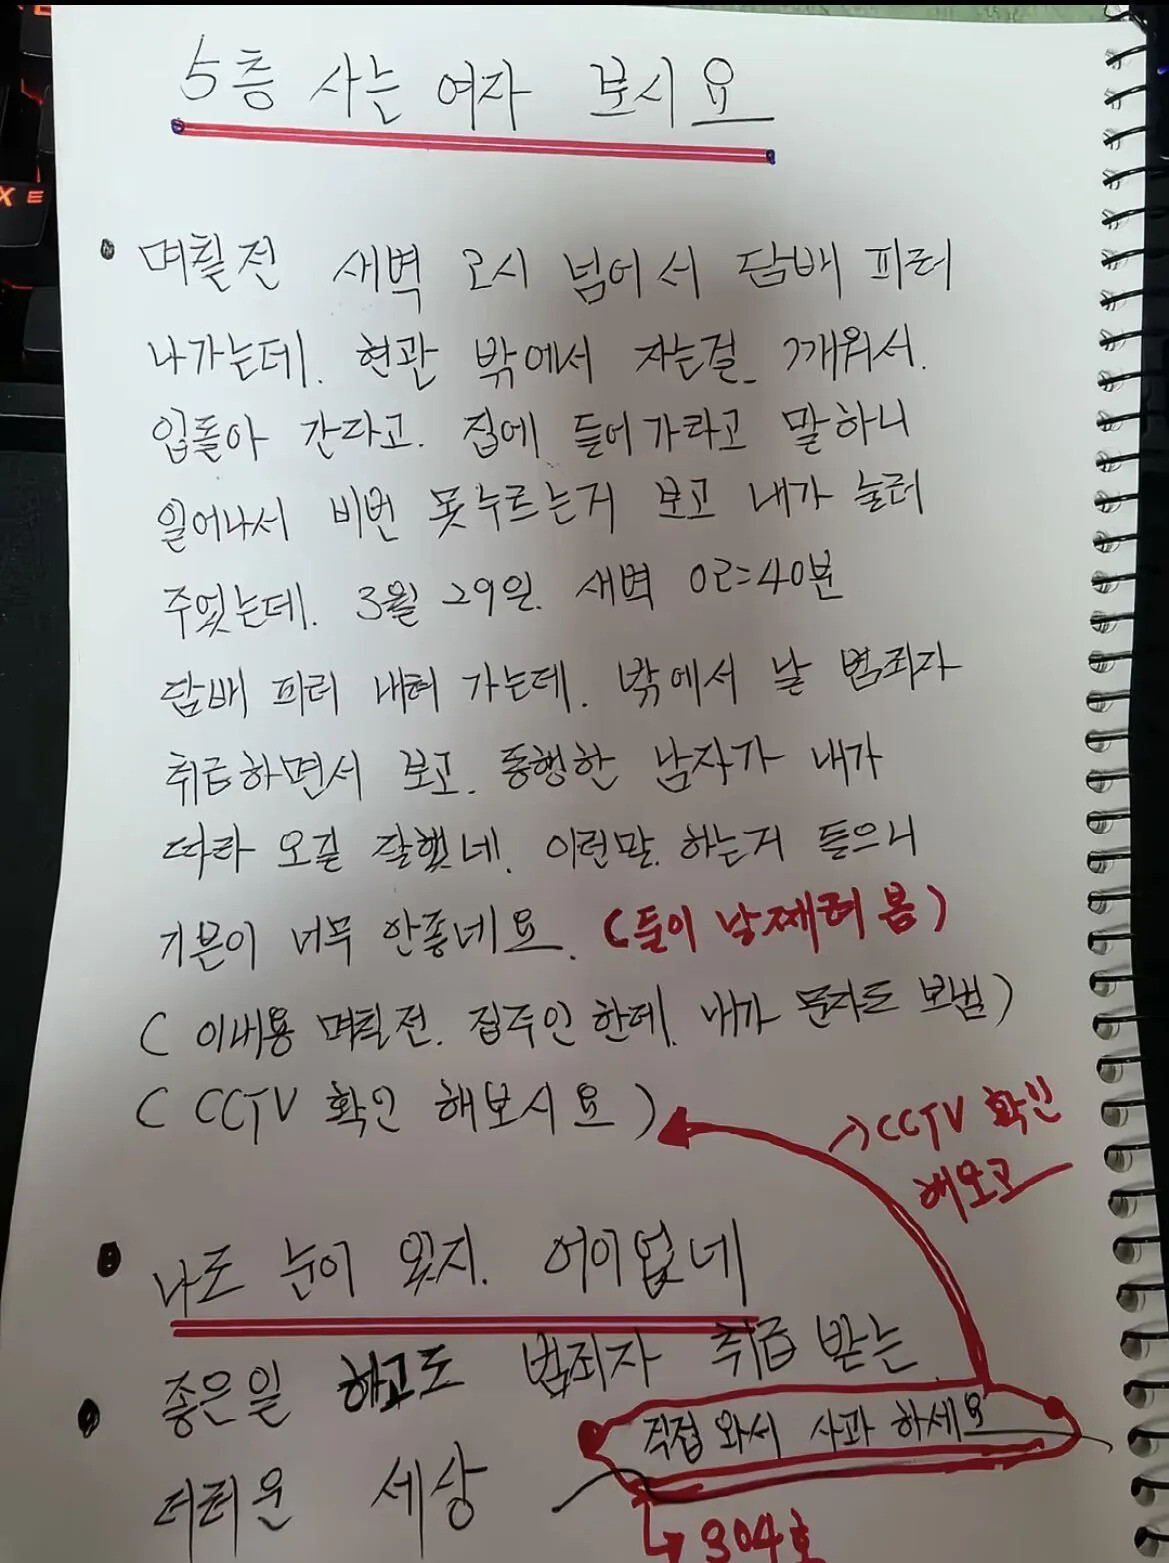 5층 사는 여자 보시요
며칠전 새벽 2시 넘어서 담배 피러
나가는데. 현관 밖에서 자는걸 깨워서.
입돌아 간다고. 집에 들어가라고 말하니
일어나서 비번 못누르는거 보고 내가 눌러
주었는데. 3월 29일. 새벽 02:40분
담배 피러 내려 가는데. 밖에서 날 범죄자
취급하면서 보고. 동행한 남자가 내가
따라 오길 잘했네. 이런말. 하는거 들으니
기분이 너무 안좋네요. (둘이 날 째려 봄)
(이내용 며칠전. 집주인 한테. 내가 문자도 보냄)
(CCTV 확인 해보시요)
→CCTV 확인
해보고
나도 눈이 있지. 어이없네
좋은일 하고도 범죄자 취급 받는
더러운 세상
직접 와서 사과 하세요
↳ 304호